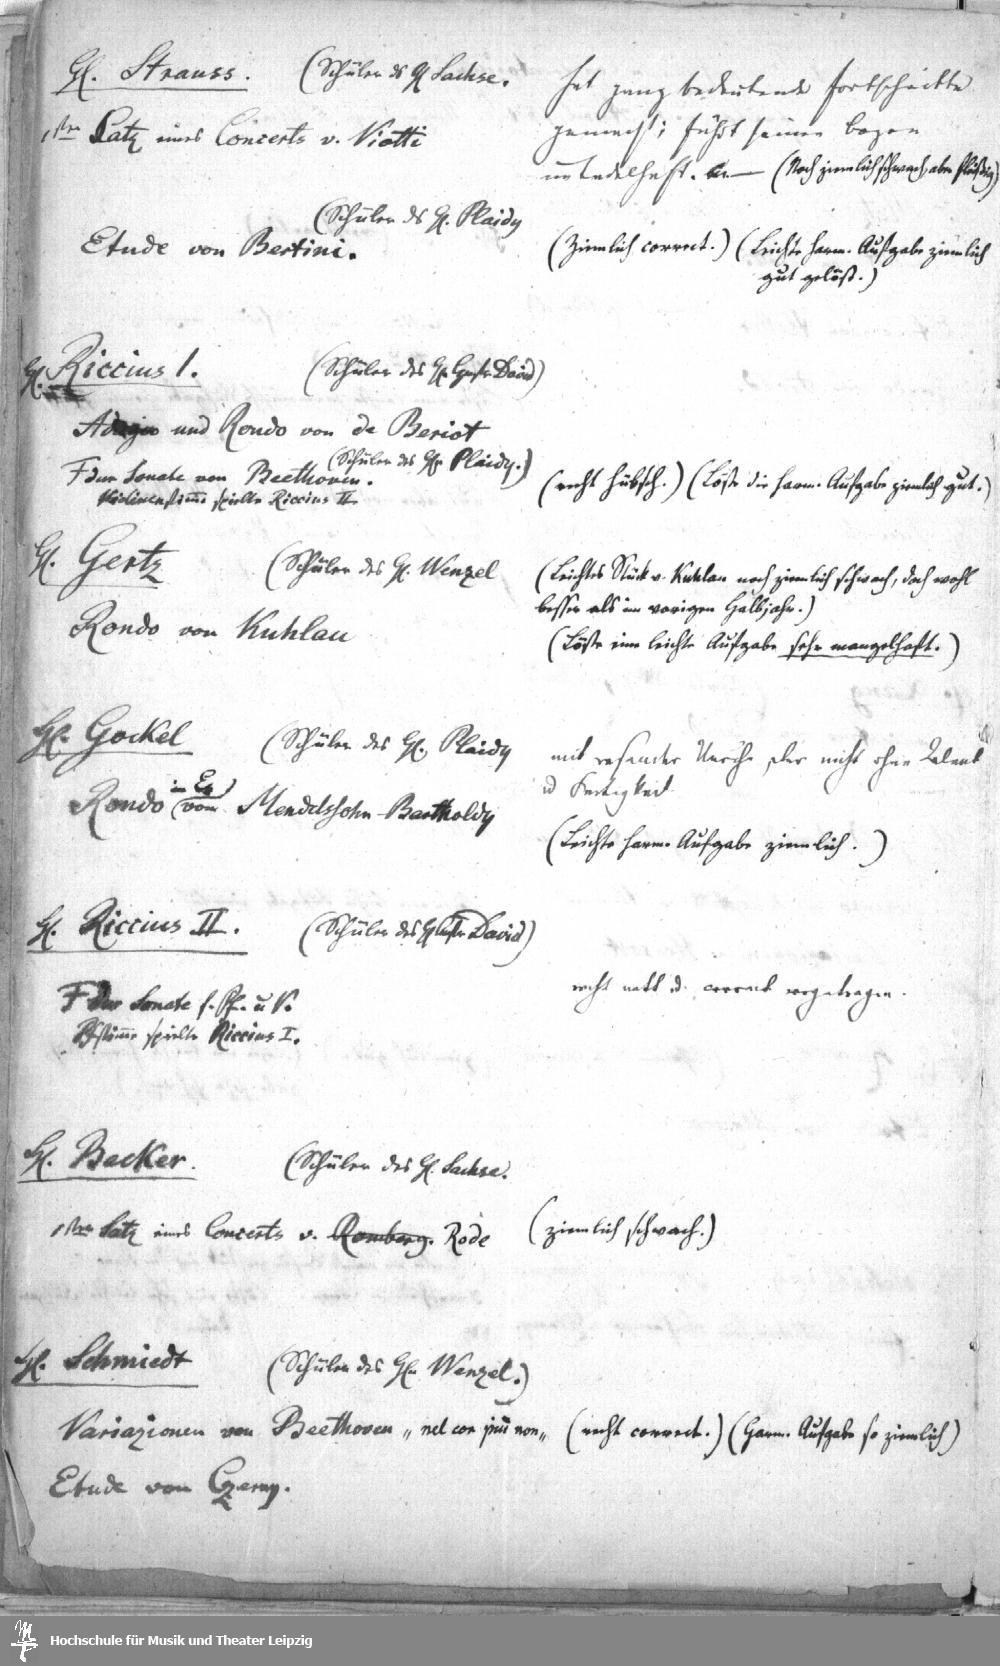 H. Strauss. (Schüler des H Sachse.
1ster Satz eines Concerts v. Viotti
hat ganz bedeutende Fortschritte
gemacht; führt seinen Bogen
untadelhaft. — (Noch ziemlich schwach, aber fleißig)
(Schüler des H. Plaidy
Etude von Bertini.
(Ziemlich correct.) (Leichte harm. Aufgabe ziemlich
gut gelöst.)
H. Riccius I. (Schüler des H. David)
Adagio und Rondo von de Beriot
(Schüler des H. Plaidy.)
F dur Sonate von Beethoven.
Violinenstimme spielte Riccius II.
(recht hübsch.) (Löste die harm. Aufgabe ziemlich gut.)
H. Gertz (Schüler des H. Wenzel
(Leichtes Stück v. Kuhlau noch ziemlich schwach, doch wohl
besser als im vorigen Halbjahr.)
Rondo von Kuhlau
(Löste eine leichte Aufgabe sehr mangelhaft.)
H. Gockel (Schüler des H. Plaidy
mit Unruhe aber nicht ohne Talent
u Fertigkeit
Rondo in Es von Mendelssohn-Bartholdy
(Leichte harm. Aufgabe ziemlich.)
H. Riccius II. (Schüler des H David)
F dur Sonate f. Pf. u V.
Pfstimme spielte Riccius I.
recht nett u. correct vorgetragen.
H. Becker. (Schüler des H. Sachse.
1ster Satz eines Concerts v. Romberg. Rode (ziemlich schwach.)
H. Schmiedt (Schüler des H. Wenzel.)
Variazionen von Beethoven „nel cor più non„ (recht correct.) (Harm. Aufgabe so ziemlich)
Etude von Czerny.
Hochschule für Musik und Theater Leipzig